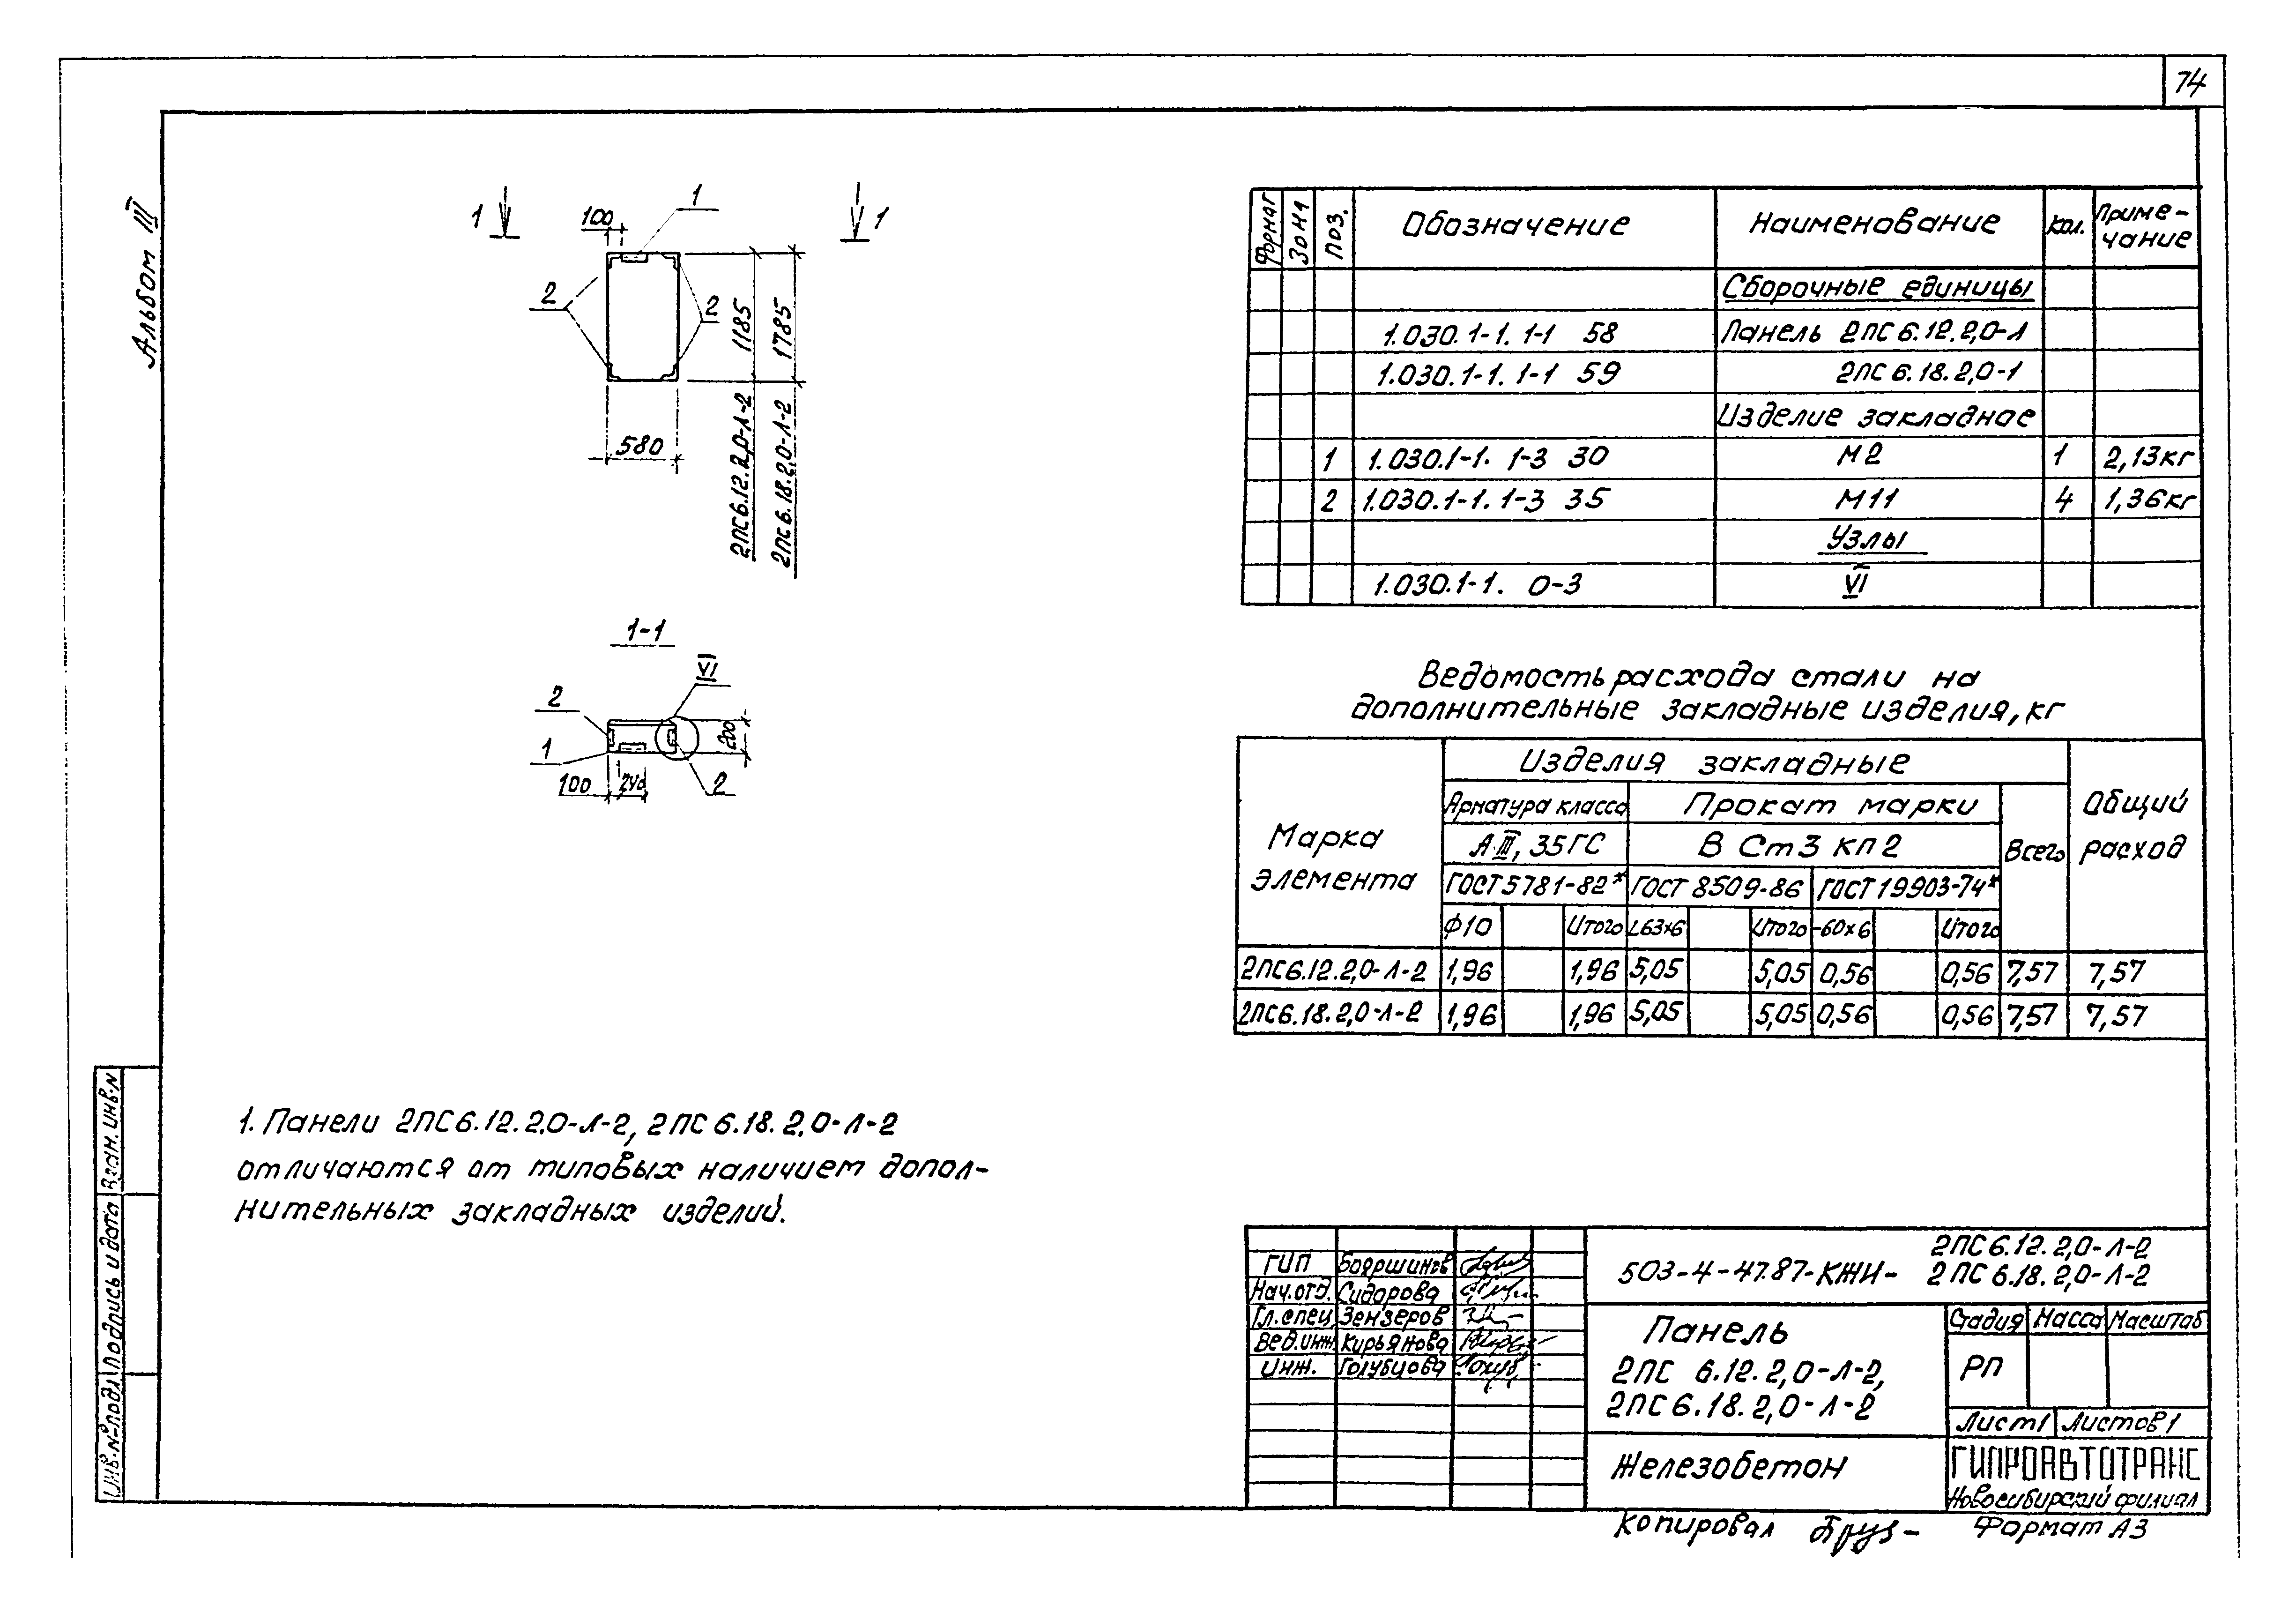 74
Альбом III
1
1
100
1
2
2
1185
1785
580
2ПС6.12.2,0-Л-2
2ПС6.18.2,0-Л-2
1-1
VI
2
1
200
100
240
2
Формат
Зона
Поз.
Обозначение
Наименование
Кол.
Приме-
чание
Сборочные единицы
1.030.1-1. 1-1 58 Панель 2ПС6.12.2,0-Л
1.030.1-1. 1-1 59 2ПС6.18.2,0-1
Изделие закладное
1 1.030.1-1. 1-3 30 М2 1 2,13кг
2 1.030.1-1. 1-3 35 М11 4 1,36кг
Узлы
1.030.1-1. 0-3 VI
Ведомость расхода стали на
дополнительные закладные изделия, кг
Марка
элемента
Изделия закладные
Общий
расход
Арматура класса
Прокат марки
Всего
А-III, 35ГС
В Ст3 кп2
ГОСТ 5781-82* ГОСТ 8509-86 ГОСТ 19903-74*
Ф10 Итого L63х6 Итого -60х6 Итого
2ПС6.12.2,0-Л-2 1,96 1,96 5,05 5,05 0,56 0,56 7,57 7,57
2ПС6.18.2,0-Л-2 1,96 1,96 5,05 5,05 0,56 0,56 7,57 7,57
1. Панели 2ПС6.12.2,0-Л-2, 2ПС6.18.2,0-Л-2
отличаются от типовых наличием допол-
нительных закладных изделий.
Взам. инв. №
Подпись и дата
Инв. № подл
ГИП Бояршинов
Нач.отд. Сидорова
Гл.спец. Зензеров
Вед.инж. Кирьянова
Инж. Голубцова
503-4-47.87-КЖИ-
2ПС6.12.2,0-Л-2
2ПС6.18.2,0-Л-2
Панель
2ПС 6.12.2,0-Л-2,
2ПС6.18.2,0-Л-2
Стадия Масса Масштаб
РП
Лист 1 Листов 1
Железобетон
ГИПРОАВТОТРАНС
Новосибирский филиал
Копировал
Формат А3